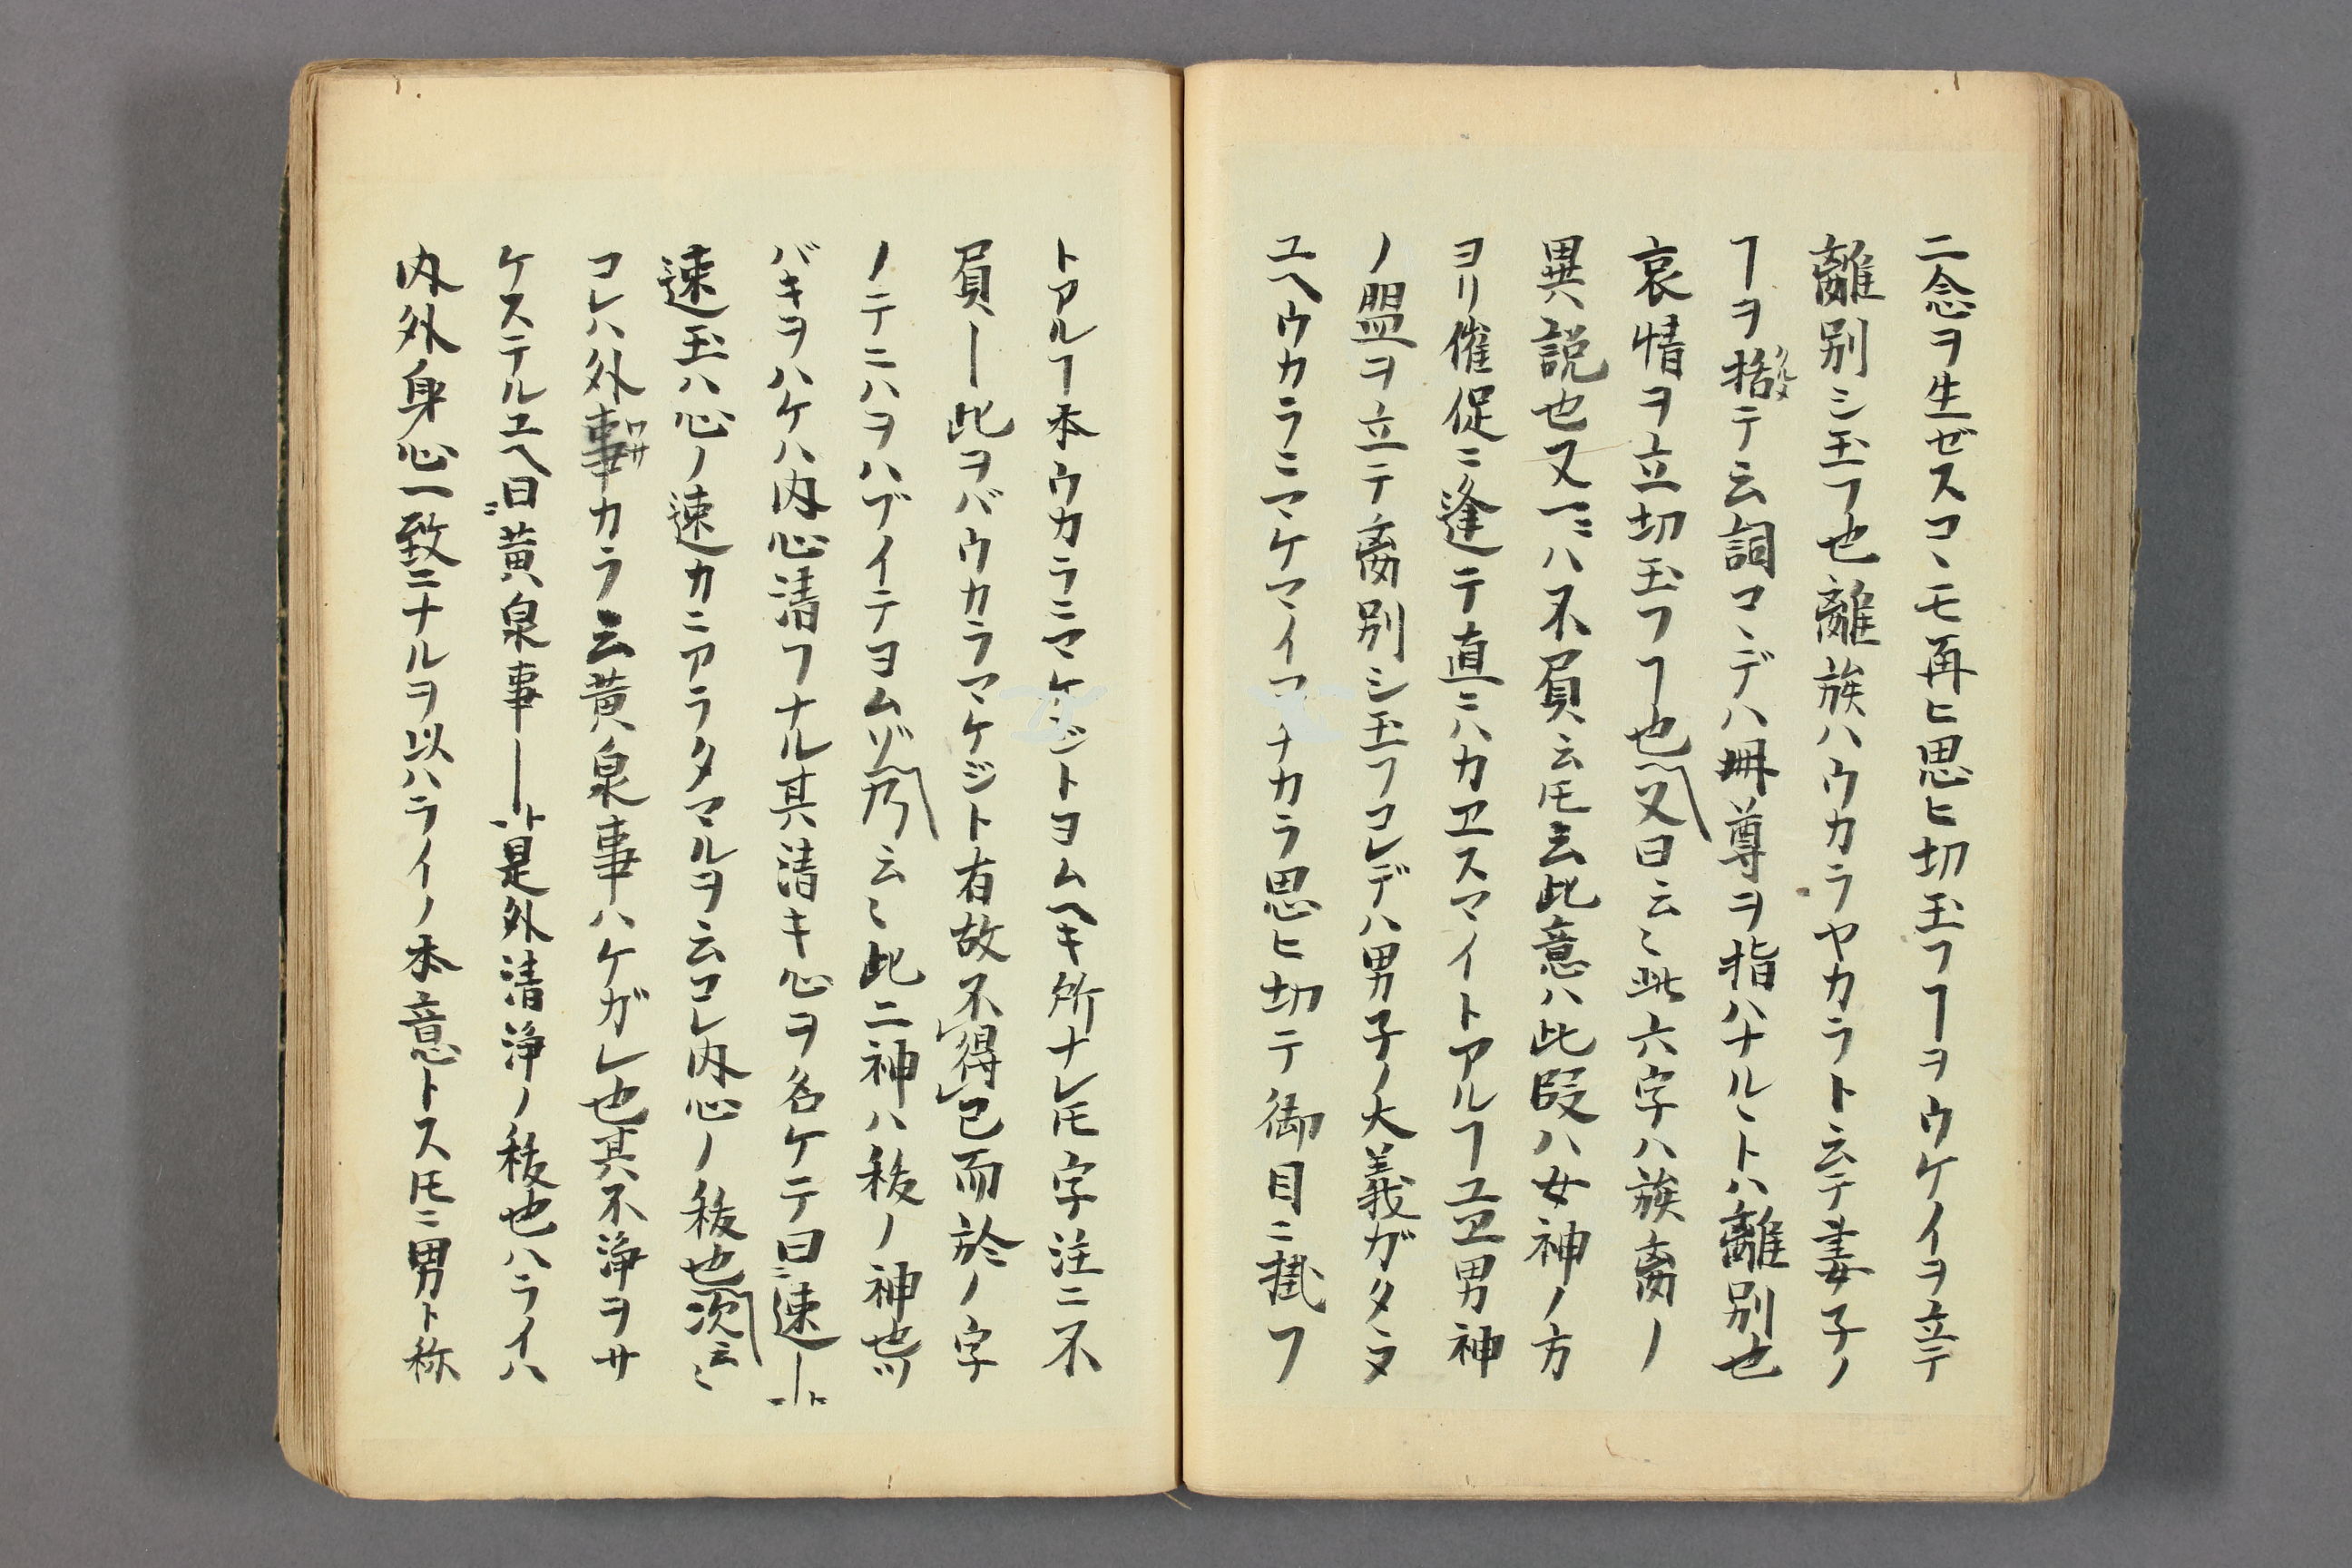 二念ヲ生ゼスコヽモ再ヒ思ヒ切玉フヿヲウケイヲ立テ
離別シ玉フ也離族ハウカラヤカラト云テ妻子ノ
ヿヲ揔テ云詞コヽデハ冊尊ヲ指ハナルヽトハ離別也
哀情ヲ立切玉フヿ也又曰云〻此六字ハ族离ノ
異説也又一ニハ不負云𪜈云此意ハ此段ハ女神ノ方
ヨリ催促ニ逢テ直ニハカヱスマイトアルヿユヱ男神
ノ盟ヲ立テ离別シ玉フコレデハ男子ノ大義ガタヽヌ
ユヘウカラニマケマイヿナカラ思ヒ切テ御目ニ掛フ
トアルヿ本ウカラニマケジトヨムヘキ所ナレ𪜈字注ニ不
負ー此ヲバウカラマケジト有故不得已而於ノ字
ノテニハヲハブイテヨムゾ乃云〻此二神ハ秡ノ神也ツ
バキヲハケハ内心清フナル其清キ心ヲ名ケテ曰ニ速ート
速玉ハ心ノ速カニアラタマルヲ云コレ内心ノ秡也次云〻
コレハ外事ワサカラ云黄泉事ハケガレ也其不浄ヲサ
ケステルユヘ曰ニ黄泉事ートハ是外清浄ノ秡也ハライハ
内外身心一致ニナルヲ以ハライノ本意トス𪜈ニ男ト称